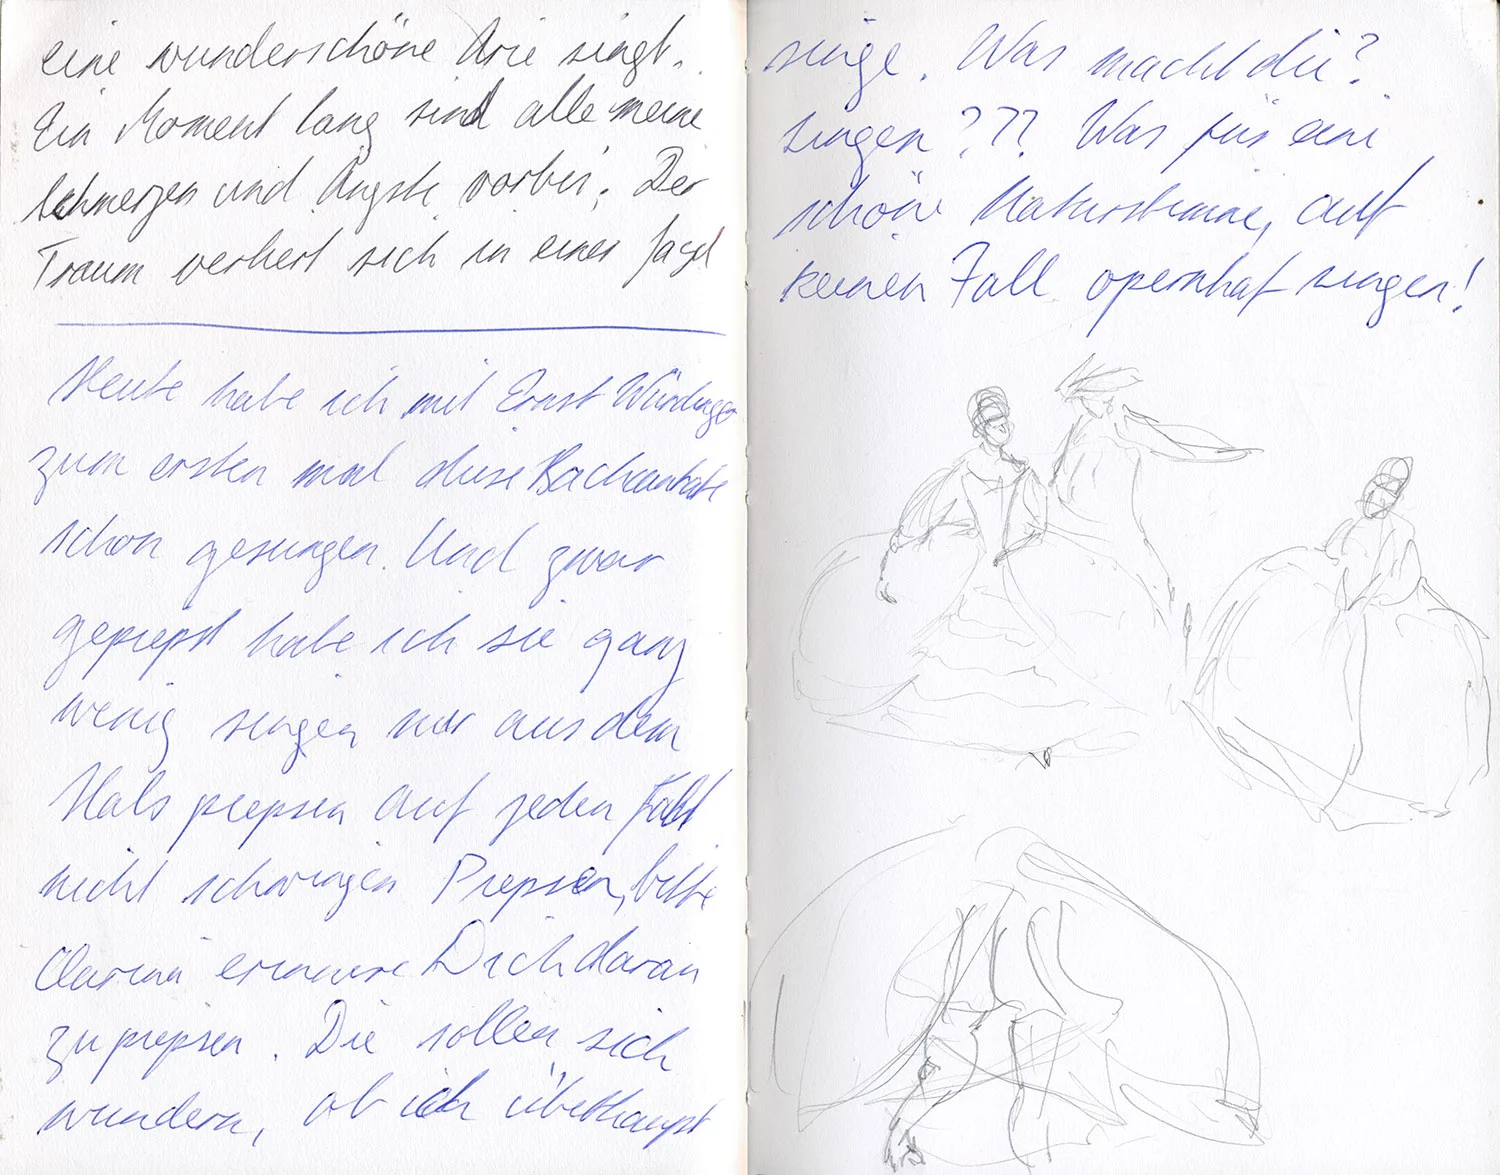 eine wunderschöne Arie singt.
Ein Moment lang sind alle meine
Schmerzen und Ängste vorbei. Der
Traum verliert sich in einer Jagd
Heute habe ich mit Ernst
zum ersten mal diese Bachcantate
schon gesungen. Und zwar
gepiepst habe ich sie ganz
wenig singen nur aus dem
Hals piepsen auf jeden Fall
nicht schwingen Piepsen, bitte
erinnere Dich daran
zu piepsen. Die sollen sich
wundern, ob ich überhaupt
singe. Was macht die?
singen??? Was für eine
schöne Naturstimme, auf
keinen Fall opernhaft singen!